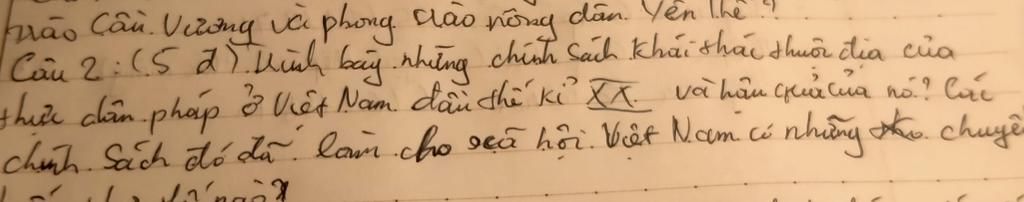 trào Cần Vương và phong trào nông dân Yên Thế?
Câu 2: (5 đ) Trình bày những chính sách khái thác thuộc địa của
thực dân pháp ở Việt Nam đầu thế kỉ XX và hậu quả của nó? Các
chính sách đó đã làm cho xã hội Việt Nam có những chuyển